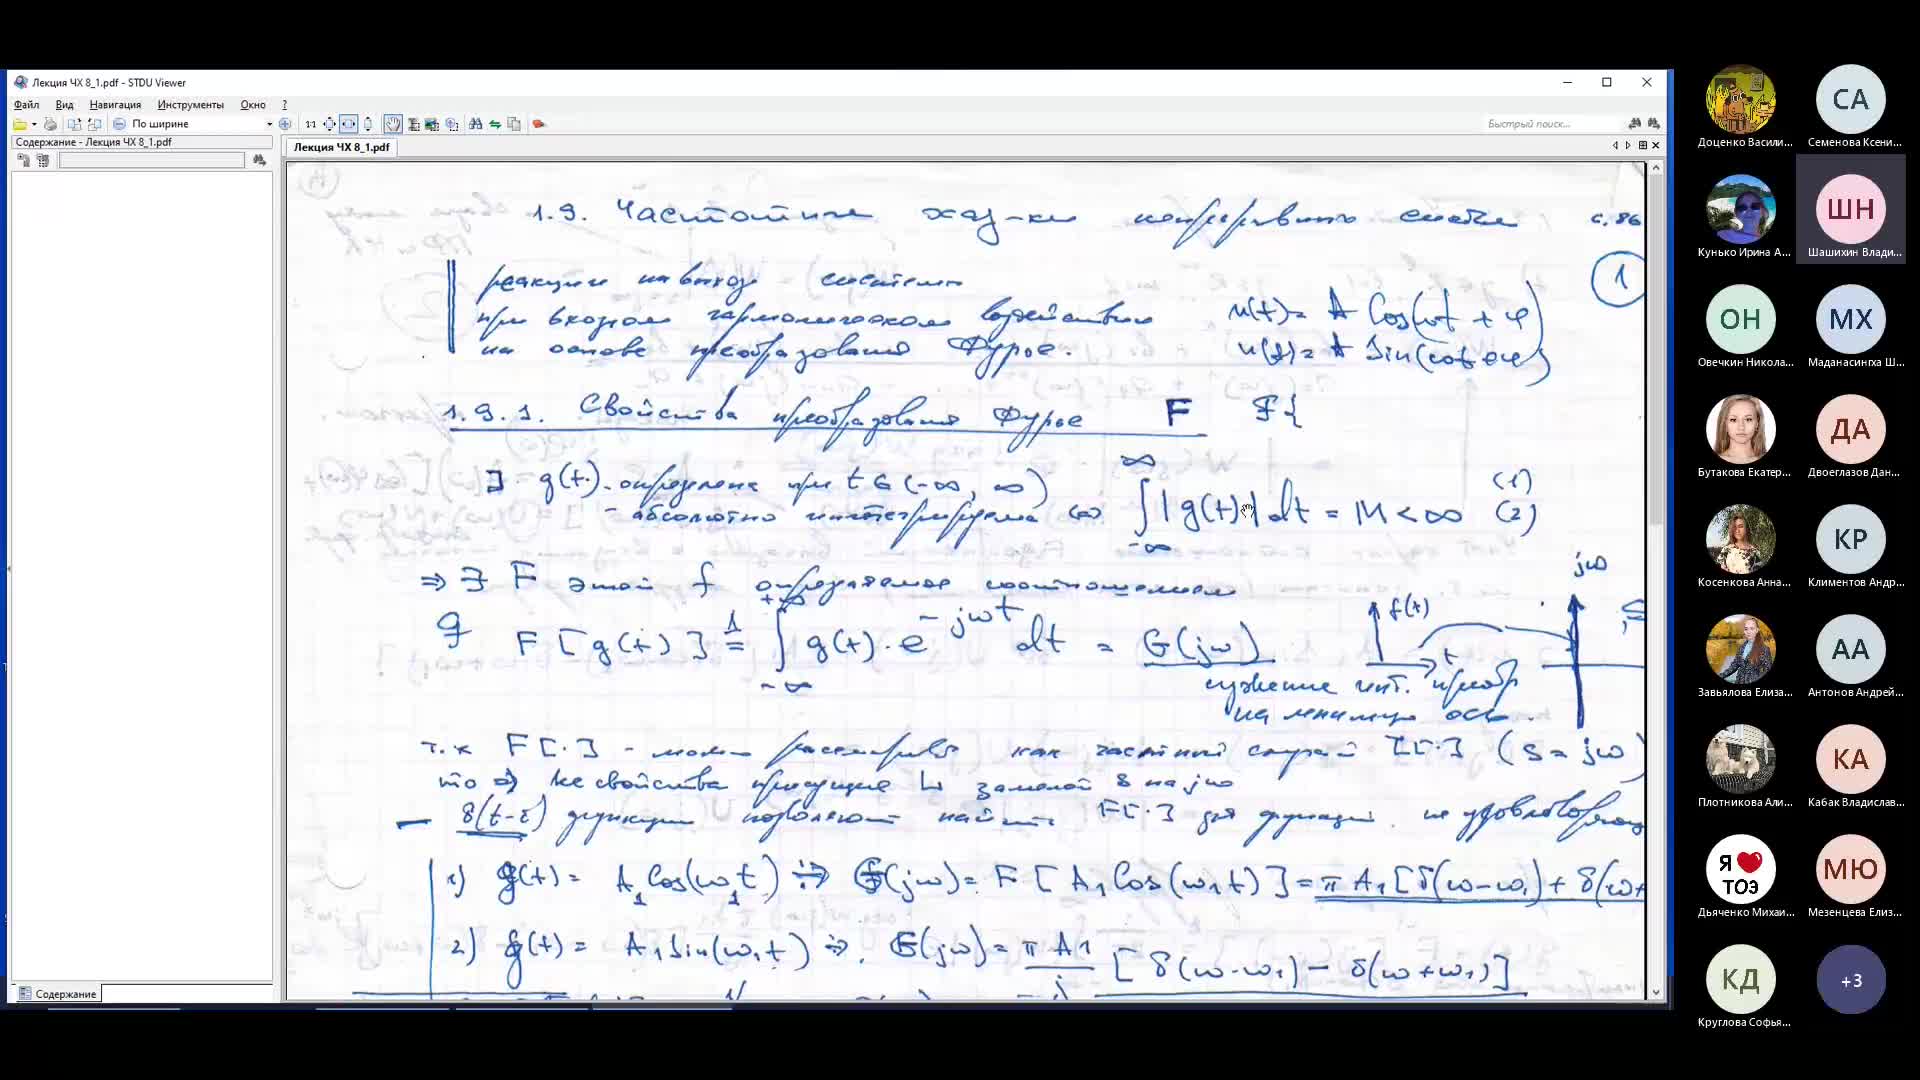 Лекция ЧХ 8_1.pdf - STDU Viewer
Файл Вид Навигация Инструменты Окно ?
По ширине
Быстрый поиск...
Содержание - Лекция ЧХ 8_1.pdf
Лекция ЧХ 8_1.pdf
1.9. Частотные хар-ки непрерывных систем с.86
1
реакция на выходе системы
при входном гармоническом воздействии u(t)= A Cos(ωt + φ)
на основе преобразования Фурье. u(t)= A Sin(ωt + φ)
1.9.1. Свойства преобразования Фурье F F{
∃ g(t) - определена при t ∈ (-∞, ∞) (1)
- абсолютно интегрируема ⇔ ∫ |g(t)| dt = M < ∞ (2)
∞
-∞
⇒ ∃ F этой f определяемое соотношением
g F [g(t)] ≜ ∫ g(t)·e^{-jωt} dt = G(jω)
+∞
-∞
f(t)
t
jω
сужение инт. преобр
на мнимую ось.
т.к F[·] - можно рассматрив как частный случай L[·] (s = jω)
то ⇒ же свойства присущие L заменой s на jω
- δ(t-τ) функции позволяют найти F[·] для функций, не удовлетворяющ
1) g(t) = A₁Cos(ω₁t) ⇒ G(jω) = F [A₁Cos(ω₁t)] = πA₁[δ(ω-ω₁) + δ(ω+
2) g(t) = A₁Sin(ω₁t) ⇒ G(jω) = πA₁/j [δ(ω-ω₁) - δ(ω+ω₁)]
Содержание
СА
Доценко Васили...
Семенова Ксени...
ШН
Кунько Ирина А...
Шашихин Влади...
ОН
МХ
Овечкин Никола...
Маданасингха Ш...
ДА
Бутакова Екатер...
Двоеглазов Дан...
КР
Косенкова Анна...
Климентов Андр...
АА
Завьялова Елиза...
Антонов Андрей...
КА
Плотникова Али...
Кабак Владислав...
Я ❤
ТОЭ
МЮ
Дьяченко Михаи...
Мезенцева Елиз...
КД
+3
Круглова Софья...